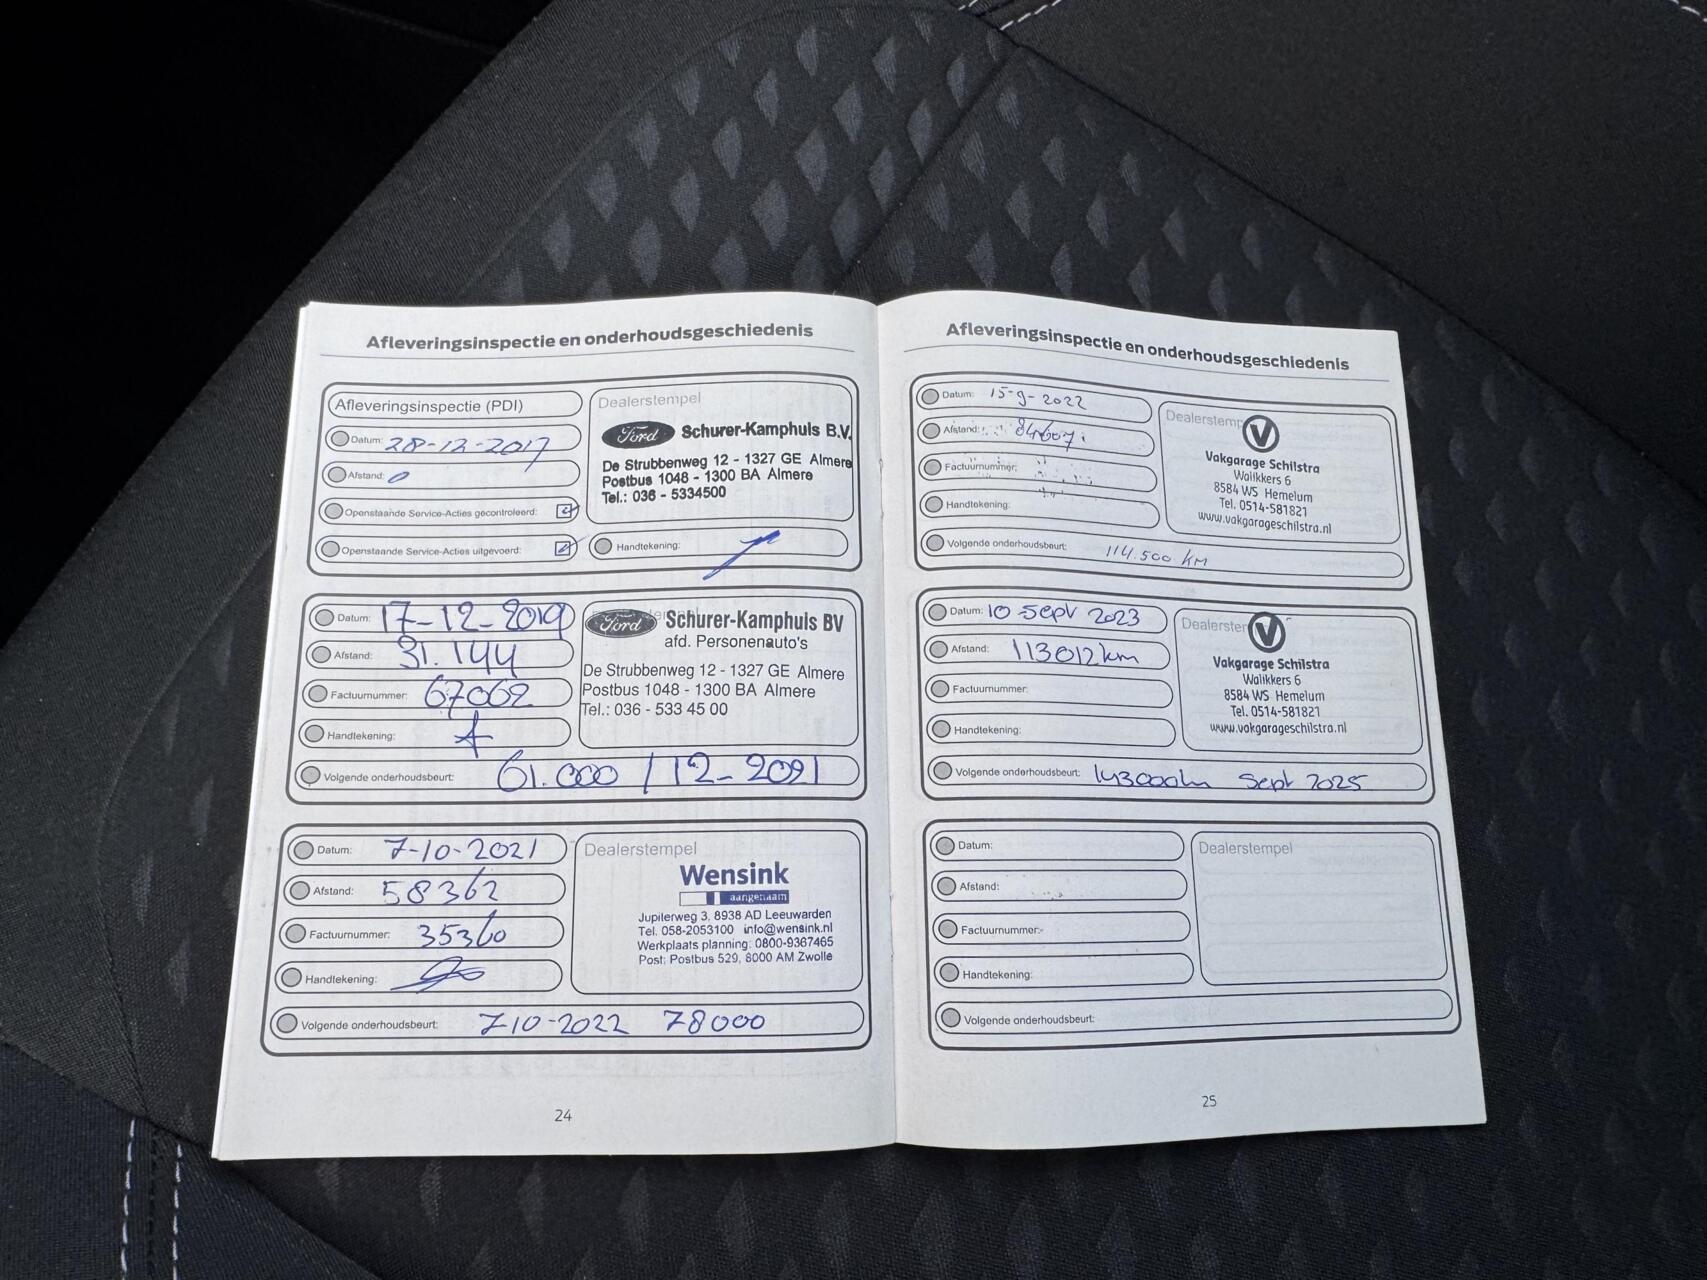 Afleveringsinspectie en onderhoudsgeschiedenis
Afleveringsinspectie (PDI)
Datum: 28-12-2017
Afstand: 0
Openstaande Service-Acties gecontroleerd:
Openstaande Service-Acties uitgevoerd:
Dealerstempel
Ford Schurer-Kamphuis B.V.
De Strubbenweg 12 - 1327 GE Almere
Postbus 1048 - 1300 BA Almere
Tel.: 036 - 5334500
Handtekening:
Datum: 17-12-2019
Afstand: 31.144
Factuurnummer: 67062
Handtekening:
Volgende onderhoudsbeurt: 61.000 / 12-2021
Ford Schurer-Kamphuis BV
afd. Personenauto's
De Strubbenweg 12 - 1327 GE Almere
Postbus 1048 - 1300 BA Almere
Tel.: 036 - 533 45 00
Datum: 7-10-2021
Afstand: 58362
Factuurnummer: 35360
Handtekening:
Volgende onderhoudsbeurt: 7-10-2022 78000
Dealerstempel
Wensink
aangenaam
Jupiterweg 3, 8938 AD Leeuwarden
Tel. 058-2053100 info@wensink.nl
Werkplaats planning: 0800-9367465
Post: Postbus 529, 8000 AM Zwolle
24
Afleveringsinspectie en onderhoudsgeschiedenis
Datum: 15-9-2022
Afstand: 84607
Factuurnummer:
Handtekening:
Volgende onderhoudsbeurt: 114.500 KM
Dealerstemp
Vakgarage Schilstra
Walikkers 6
8584 WS Hemelum
Tel. 0514-581821
www.vakgarageschilstra.nl
Datum: 10 Sept 2023
Afstand: 113012km
Factuurnummer:
Handtekening:
Volgende onderhoudsbeurt: 143000km Sept 2025
Dealerster
Vakgarage Schilstra
Walikkers 6
8584 WS Hemelum
Tel. 0514-581821
www.vakgarageschilstra.nl
Datum:
Afstand:
Factuurnummer:
Handtekening:
Volgende onderhoudsbeurt:
Dealerstempel
25